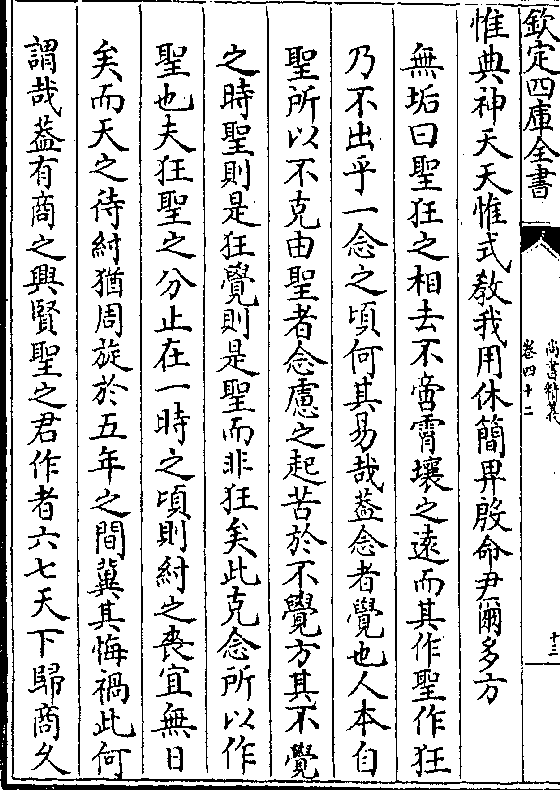 欽定四庫全書
尚書精義
卷四十二
十三
惟典神天天惟式教我用休簡畀殷命尹爾多方
無垢曰聖狂之相去不啻霄壤之遠而其作聖作狂
乃不出乎一念之頃何其易哉葢念者覺也人本自
聖所以不克由聖者念慮之起苦於不覺方其不覺
之時聖則是狂覺則是聖而非狂矣此克念所以作
聖也夫狂聖之分止在一時之頃則紂之喪宜無日
矣而天之待紂猶周旋於五年之間冀其悔禍此何
謂哉葢有商之興賢聖之君作者六七天下歸商久